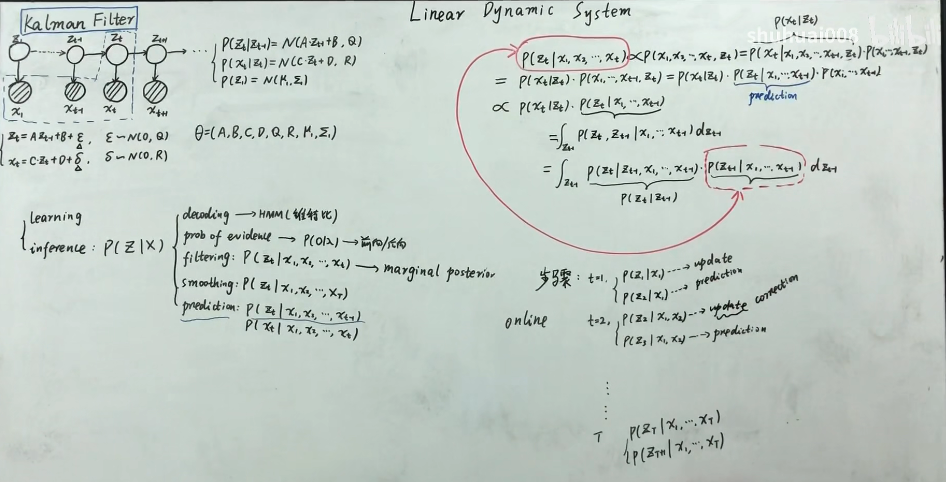 Linear Dynamic System
Kalman Filter
Z₁ Zₜ₋₁ Zₜ Zₜ₊₁
x₁ xₜ₋₁ xₜ xₜ₊₁
P(Zₜ|Zₜ₋₁) = N(A·Zₜ₋₁+B, Q)
P(xₜ|Zₜ) = N(C·Zₜ+D, R)
P(Z₁) = N(μ₁, Σ₁)
Zₜ = A Zₜ₋₁ + B + ε, ε ~ N(0, Q)
xₜ = C·Zₜ + D + δ, δ ~ N(0, R)
θ = (A, B, C, D, Q, R, μ₁, Σ₁)
learning
inference: P(Z|X)
decoding → HMM(维特比)
prob of evidence → P(O|λ) → 前向/后向
filtering: P(Zₜ | x₁, x₂, ⋯, xₜ) → marginal posterior
smoothing: P(Zₜ | x₁, x₂, ⋯, x_T)
prediction: P(Zₜ | x₁, x₂, ⋯, xₜ₋₁)
P(xₜ | x₁, x₂, ⋯, xₜ₋₁)
P(xₜ|Zₜ)
shuhuai008
bilibili
P(Zₜ | x₁, x₂, ⋯, xₜ) ∝ P(x₁, x₂, ⋯, xₜ, Zₜ) = P(xₜ | x₁, x₂, ⋯, xₜ₋₁, Zₜ)·P(x₁, ⋯, xₜ₋₁, Zₜ)
= P(xₜ|Zₜ)·P(x₁, ⋯, xₜ₋₁, Zₜ) = P(xₜ|Zₜ)·P(Zₜ | x₁, ⋯, xₜ₋₁)·P(x₁, ⋯, xₜ₋₁)
prediction
∝ P(xₜ|Zₜ)·P(Zₜ | x₁, ⋯, xₜ₋₁)
= ∫_Zₜ₋₁ P(Zₜ, Zₜ₋₁ | x₁, ⋯, xₜ₋₁) dZₜ₋₁
= ∫_Zₜ₋₁ P(Zₜ | Zₜ₋₁, x₁, ⋯, xₜ₋₁)·P(Zₜ₋₁ | x₁, ⋯, xₜ₋₁) dZₜ₋₁
P(Zₜ | Zₜ₋₁)
步骤: t=1, P(Z₁|x₁) ⋯→ update
P(Z₂|x₁) ⋯→ prediction
online
t=2, P(Z₂|x₁, x₂) → update correction
P(Z₃|x₁, x₂) → prediction
T P(Z_T | x₁, ⋯, x_T)
P(Z_T₊₁ | x₁, ⋯, x_T)